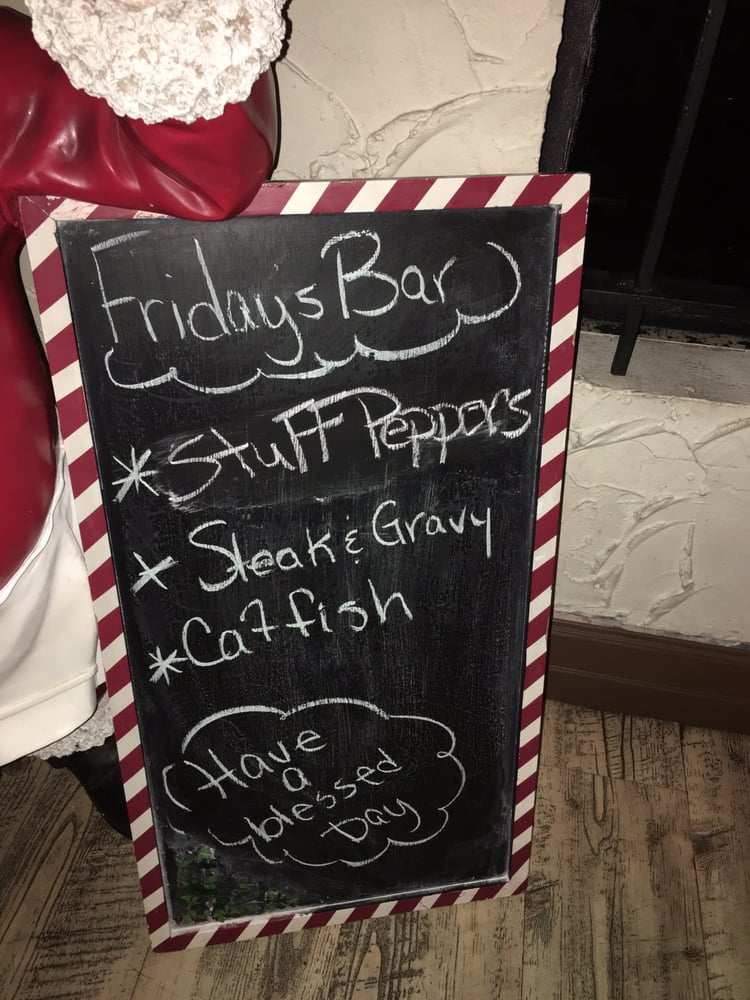 Friday's Bar
* Stuff Peppers
* Steak & Gravy
* Catfish
Have
a
blessed
Day